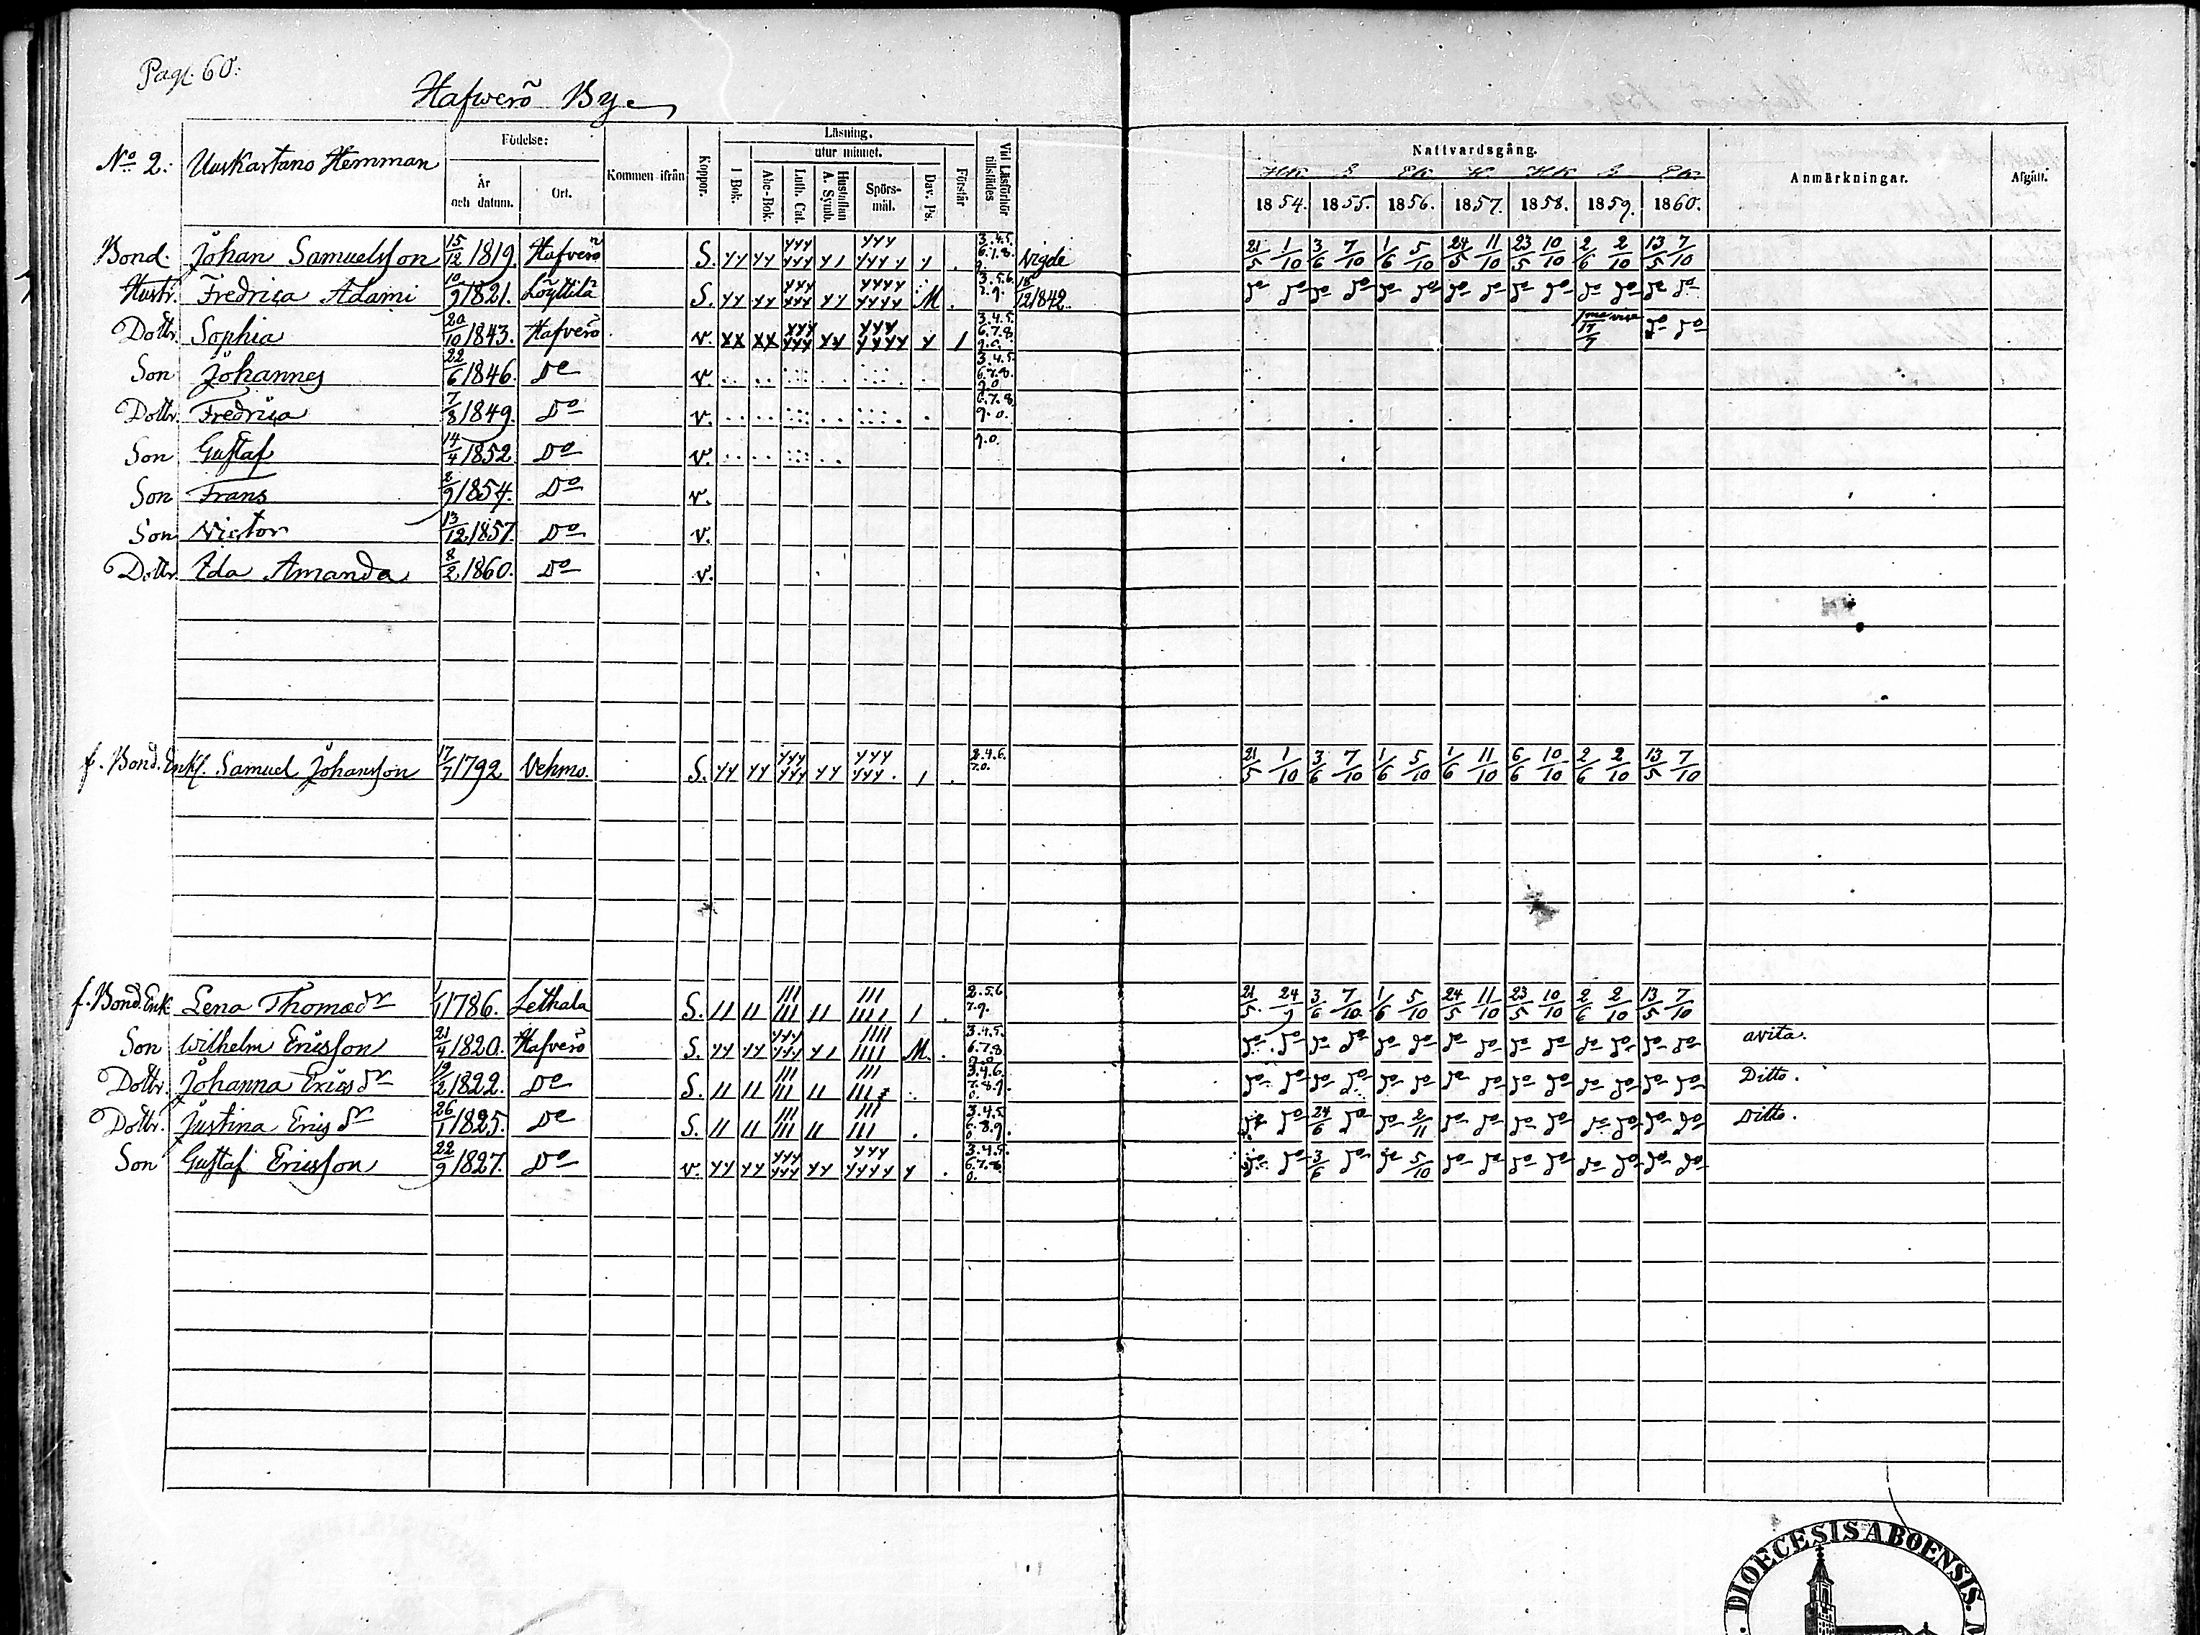 Pag. 60.
Hafwerö By.
No 2. Uuskartano Hemman
Födelse:
År och datum.
Ort.
Kommen ifrån
Koppor.
Läsning.
I Bok.
utur minnet.
Abc-Bok.
Luth. Cat.
Hustaflan A. Symb.
Spörsmål.
Dav. Ps.
Förstår
Vid Läsförhör tillstädes
Nattvardsgång.
1854. 1855. 1856. 1857. 1858. 1859. 1860.
Anmärkningar.
Afgått.
Bond. Johan Samuelsson 15/12 1819. Hafverö S. 3.4.5. 6.7.8. 9. Vigde 21/5 1/10 3/6 7/10 1/6 5/10 24/5 11/10 23/5 10/10 2/6 2/10 13/5 7/10
Hustr. Fredrica Adami 10/9 1821. Löyttilä S. M. 3.5.6. 7.9. 18/12 1842. do do do do do do do do do do do do do do
Dottr. Sophia 20/10 1843. Hafverö v. 3.4.5. 6.7.8. 9.0. 17/7 do do
Son Johannes 22/6 1846. Do v. 3.4.5. 6.7.8. 9.0
Dottr. Fredrica 7/8 1849. Do v. 6.7.8. 9.0.
Son Gustaf 14/4 1852. Do v. 9.0.
Son Frans 2/9 1854. Do v.
Son Victor 13/12 1857. Do v.
Dottr. Ida Amanda 8/2 1860. Do v.
f. Bond. Enkl. Samuel Johansson 17/7 1792 Vehmo. S. 2.4.6. 7.0. 21/5 1/10 3/6 7/10 1/6 5/10 1/6 11/10 6/6 10/10 2/6 2/10 13/5 7/10
f. Bond. Enk. Lena Thomædr 1/1 1786. Lethala S. 2.5.6 7.9. 21/5 24/9 3/6 7/10 1/6 5/10 24/5 11/10 23/5 10/10 2/6 2/10 13/5 7/10
Son Wilhelm Ericsson 21/4 1820. Hafverö S. M. 3.4.5. 6.7.8. 9.0. do do do do do do do do do do do do do do avita.
Dottr. Johanna Ericsdr 2/2 1822. Do S. 3.4.6. 7.8.9. 0. do do do do do do do do do do do do do do Ditto.
Dottr. Justina Ericsdr 26/1 1825. Do S. 3.4.5. 6.8.9. 0 do do 24/6 do do 2/11 do do do do do do do do Ditto.
Son Gustaf Ericsson 22/9 1827. Do v. 3.4.5. 6.7.8. 0. do do 3/6 do do 5/10 do do do do do do do do
DIOECESIS ABOENSIS.